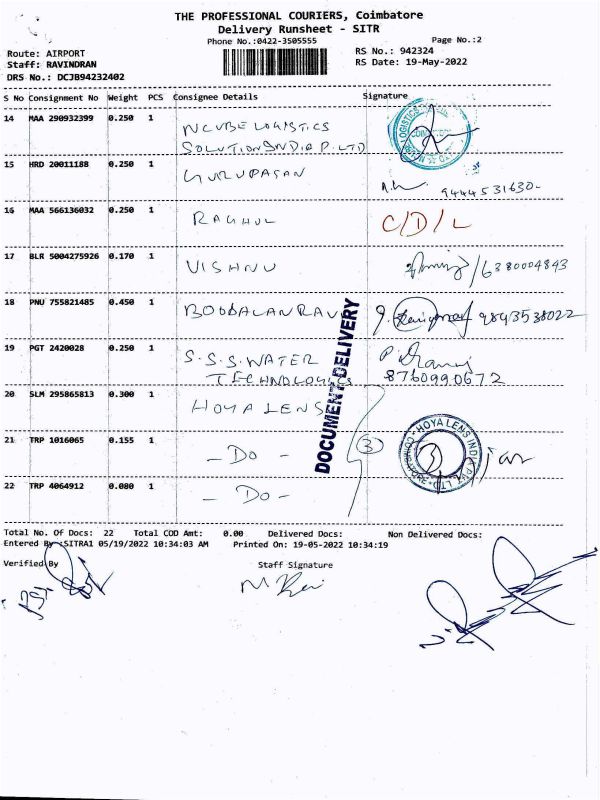 THE PROFESSIONAL COURIERS, Coimbatore
Delivery Runsheet - SITR
Phone No.:0422-3505555
Page No.:2
Route: AIRPORT
RS No.: 942324
Staff: RAVINDRAN
RS Date: 19-May-2022
DRS No.: DCJB94232402
S No Consignment No Weight PCS Consignee Details Signature
14 MAA 290932399 0.250 1 NCUBE LOGISTICS
SOLUTION INDIA P. LTD
15 HRD 20011188 0.250 1 GURUPASAN
9444531630-
16 MAA 566136032 0.250 1 RAGHUL C/D/L
17 BLR 5004275926 0.170 1 VISHNU /6380004843
18 PNU 755821485 0.450 1 BOOBALAN RAV 9843538022
19 PGT 2420028 0.250 1 S.S.S. WATER
TECHNOLOGIES 8760990672
20 SLM 295865813 0.300 1 HOYA LENS
21 TRP 1016065 0.155 1 - DO - 3
22 TRP 4064912 0.080 1 - DO -
DOCUMENT DELIVERY
HOYA LENS INDIA PVT LTD
COIMBATORE
Total No. Of Docs: 22 Total COD Amt: 0.00 Delivered Docs: Non Delivered Docs:
Entered By :SITRA1 05/19/2022 10:34:03 AM Printed On: 19-05-2022 10:34:19
Verified By Staff Signature